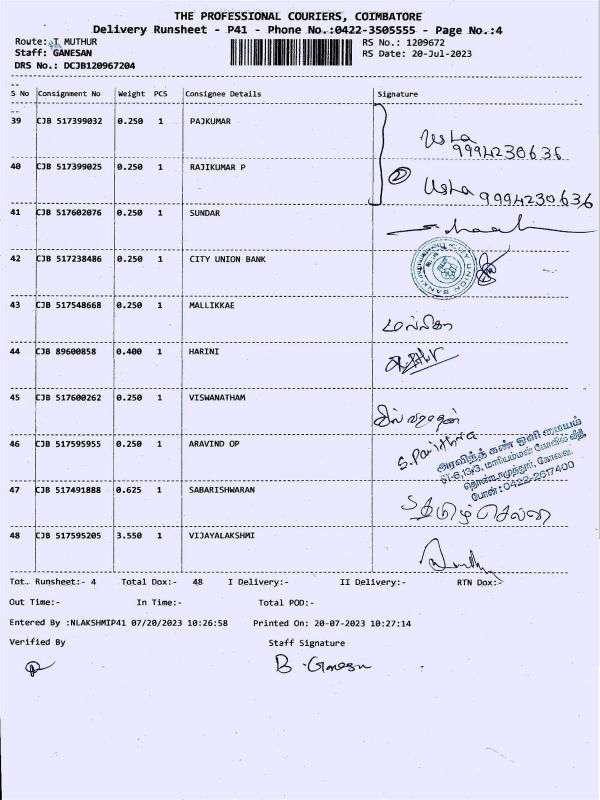 THE PROFESSIONAL COURIERS, COIMBATORE
Delivery Runsheet - P41 - Phone No.:0422-3505555 - Page No.:4
Route: T MUTHUR RS No.: 1209672
Staff: GANESAN RS Date: 20-Jul-2023
DRS No.: DCJB120967204
S No Consignment No Weight PCS Consignee Details Signature
39 CJB 517399032 0.250 1 PAJKUMAR
Usha
9994230636
40 CJB 517399025 0.250 1 RAJIKUMAR P
2 Usha 9994230636
41 CJB 517602076 0.250 1 SUNDAR
42 CJB 517238486 0.250 1 CITY UNION BANK
CITY UNION BANK
43 CJB 517548668 0.250 1 MALLIKKAE
மல்லிகா
44 CJB 89600858 0.400 1 HARINI
45 CJB 517600262 0.250 1 VISWANATHAM
46 CJB 517595955 0.250 1 ARAVIND OP
S. Pavithra
அரவிந்த் கண் ஒளி மையம்
61-6,13/3, மாரியம்மன் கோவில் வீதி,
தொண்டாமுத்தூர், கோவை.
போன் : 0422-2617400
47 CJB 517491888 0.625 1 SABARISHWARAN
தமிழ் செல்வி
48 CJB 517595205 3.550 1 VIJAYALAKSHMI
Tot. Runsheet:- 4 Total Dox:- 48 I Delivery:- II Delivery:- RTN Dox:-
Out Time:- In Time:- Total POD:-
Entered By :NLAKSHMIP41 07/20/2023 10:26:58 Printed On: 20-07-2023 10:27:14
Verified By Staff Signature
B. Ganesan